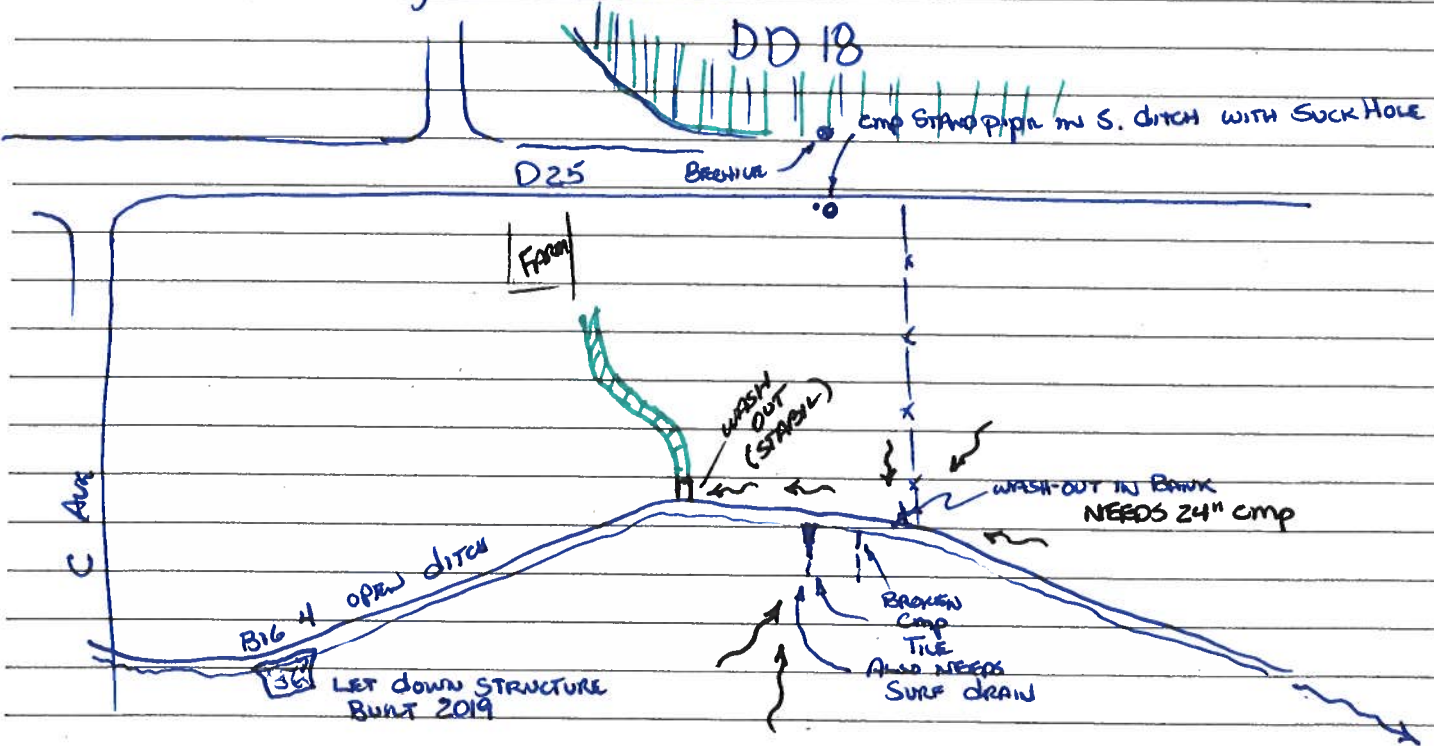 DD 18
CMP STAND pipe IN S. ditch WITH SUCK HOLE
D25
BEEHIVE
FARM
WASH
OUT
(STABIL)
WASH-OUT IN BANK
NEEDS 24" CMP
C Ave
BIG 4 OPEN DITCH
BROKEN
CMP
TILE
ALSO NEEDS
SURF dRAIN
LET down STRUCTURE
BUILT 2019